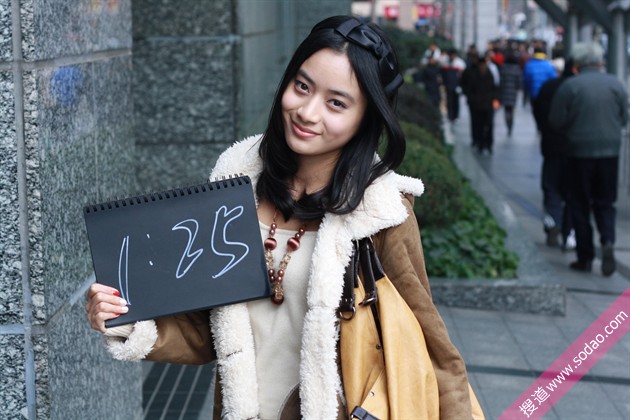 1:25
搜道 www.sodao.com